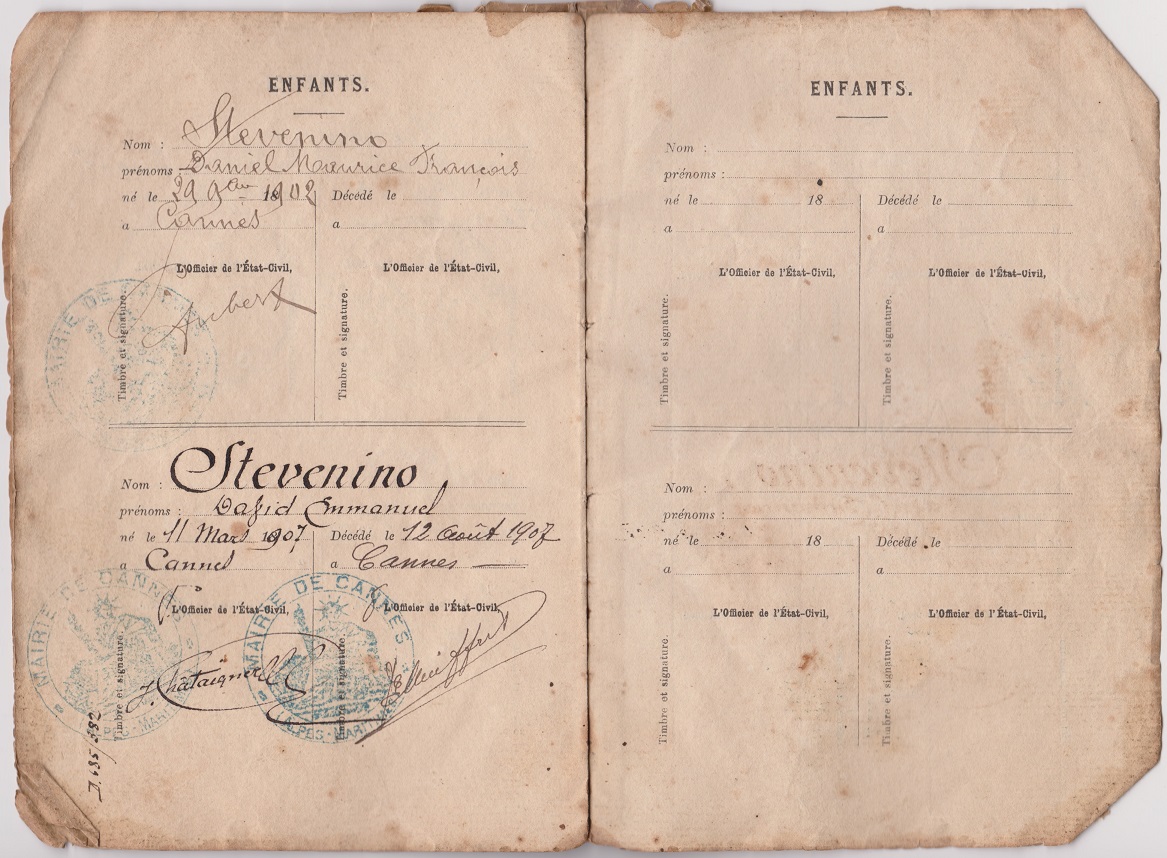 ENFANTS.
Nom : Stevenino
prénoms : Daniel Maurice François
né le 29 9bre 1902 Décédé le
a Cannes a
L'Officier de l'État-Civil, L'Officier de l'État-Civil,
Timbre et signature. Timbre et signature.
MAIRIE DE
Aubert
Nom : Stevenino
prénoms : David Emmanuel
né le 11 Mars 1907 Décédé le 12 août 1907
a Cannes a Cannes
L'Officier de l'État-Civil, L'Officier de l'État-Civil,
Timbre et signature. Timbre et signature.
MAIRIE DE CANNES
MAIRIE DE CANNES
ALPES-MARITIMES
ENFANTS.
Nom :
prénoms :
né le 18 Décédé le
a a
L'Officier de l'État-Civil, L'Officier de l'État-Civil,
Timbre et signature. Timbre et signature.
Nom :
prénoms :
né le 18 Décédé le
a a
L'Officier de l'État-Civil, L'Officier de l'État-Civil,
Timbre et signature. Timbre et signature.